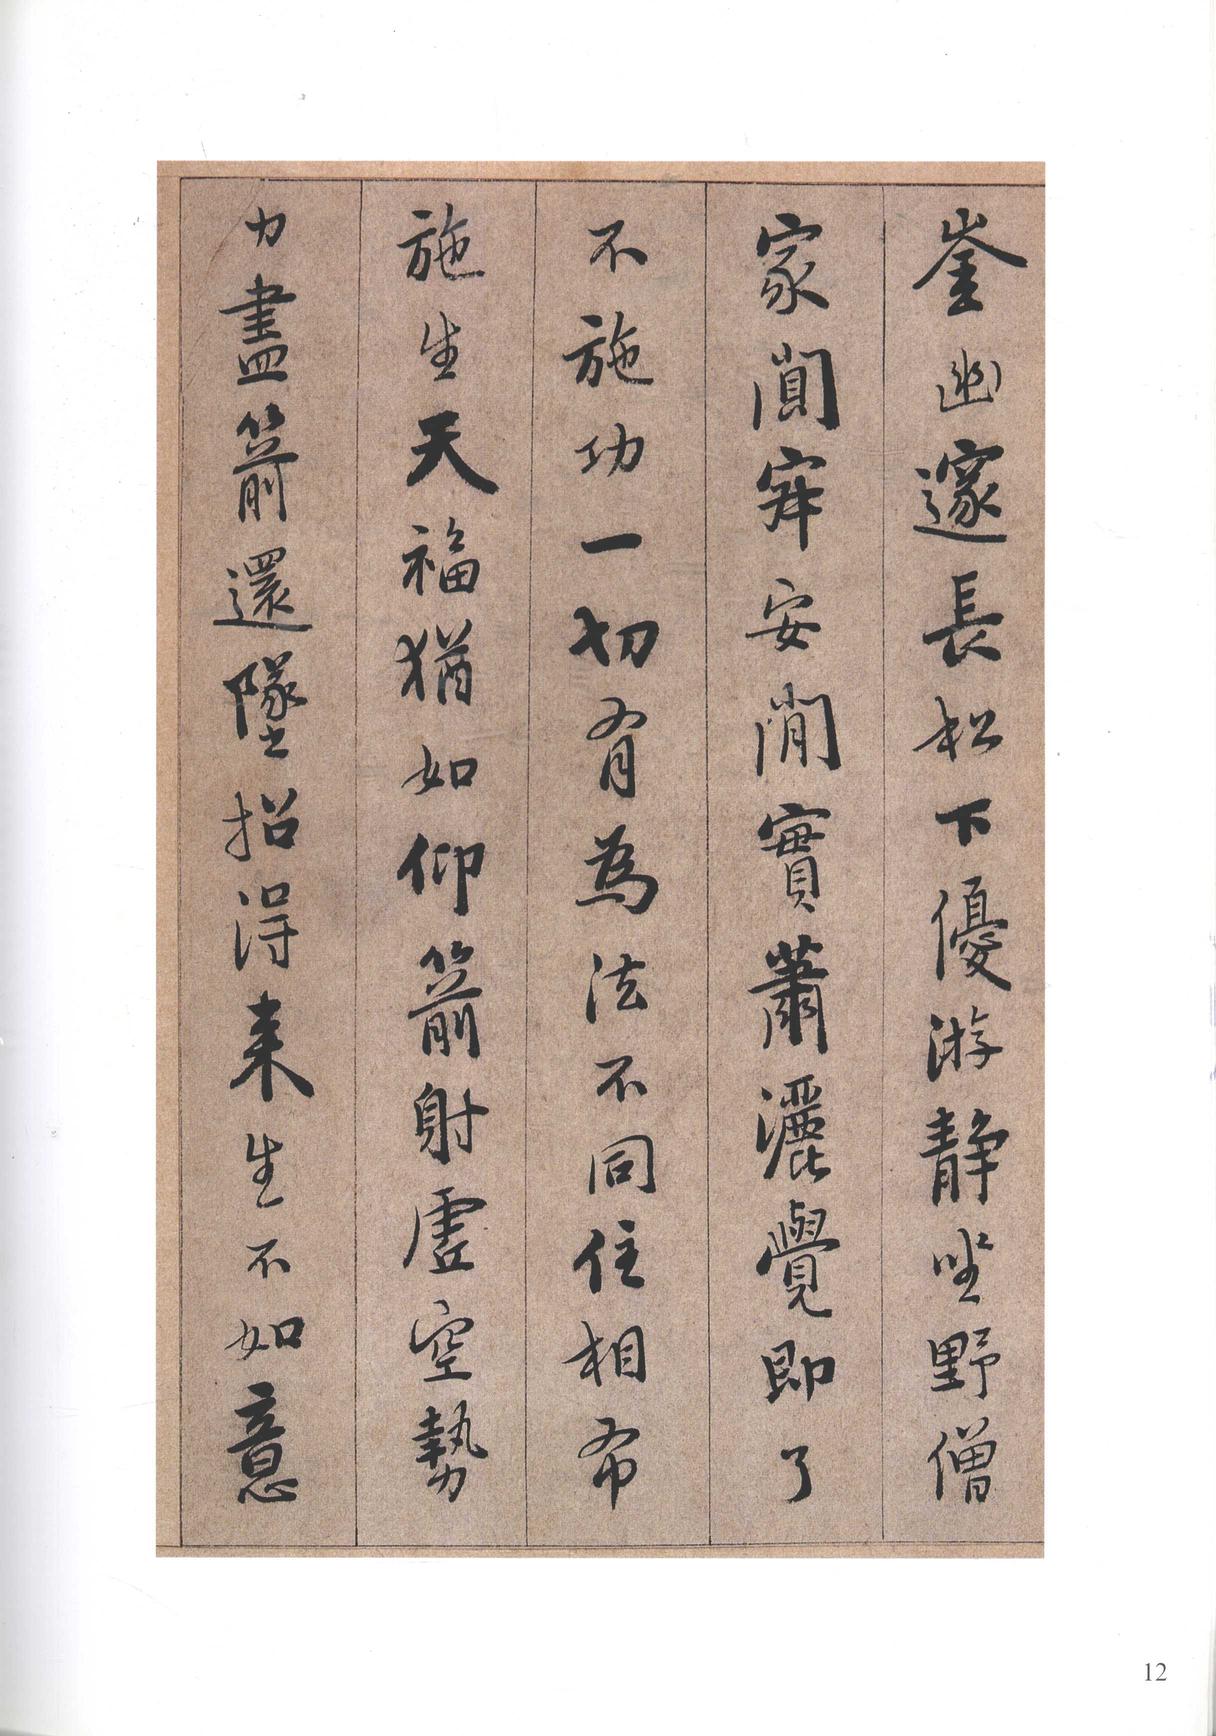 崟幽邃長松下優游静坐野僧
家闃寂安閑實蕭灑覺即了
不施功一切有為法不同住相布
施生天福猶如仰箭射虚空勢
力盡箭還墜招得来生不如意
12